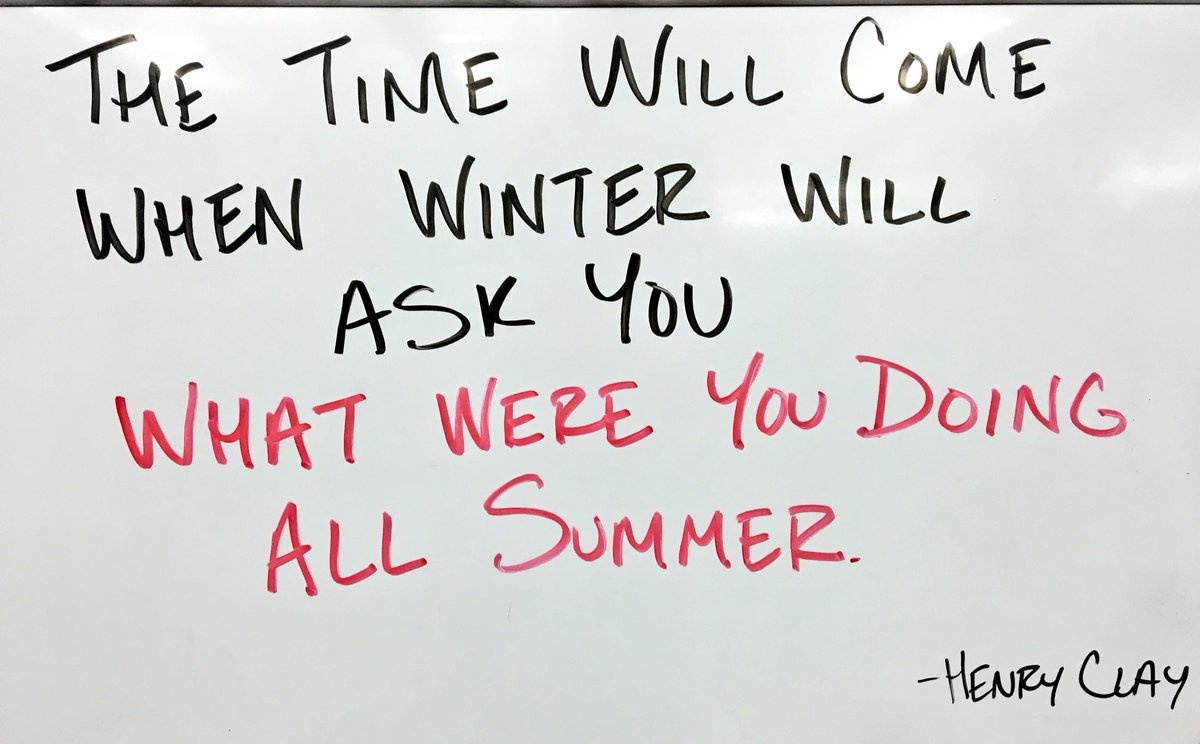 THE TIME WILL COME
WHEN WINTER WILL
ASK YOU
WHAT WERE YOU DOING
ALL SUMMER.
-HENRY CLAY